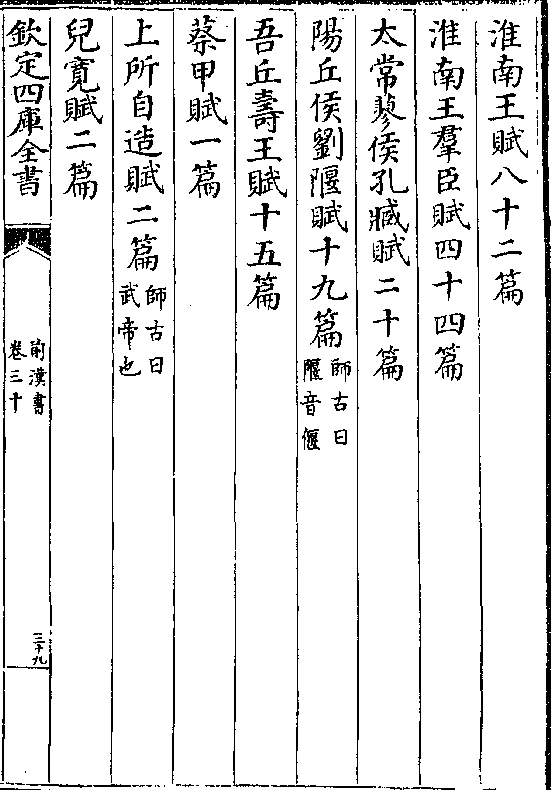 淮南王賦八十二篇
淮南王羣臣賦四十四篇
太常蓼侯孔臧賦二十篇
陽丘侯劉隁賦十九篇師古曰隁音偃
吾丘壽王賦十五篇
蔡甲賦一篇
上所自造賦二篇師古曰武帝也
兒寬賦二篇
欽定四庫全書
前漢書
卷三十
三十九